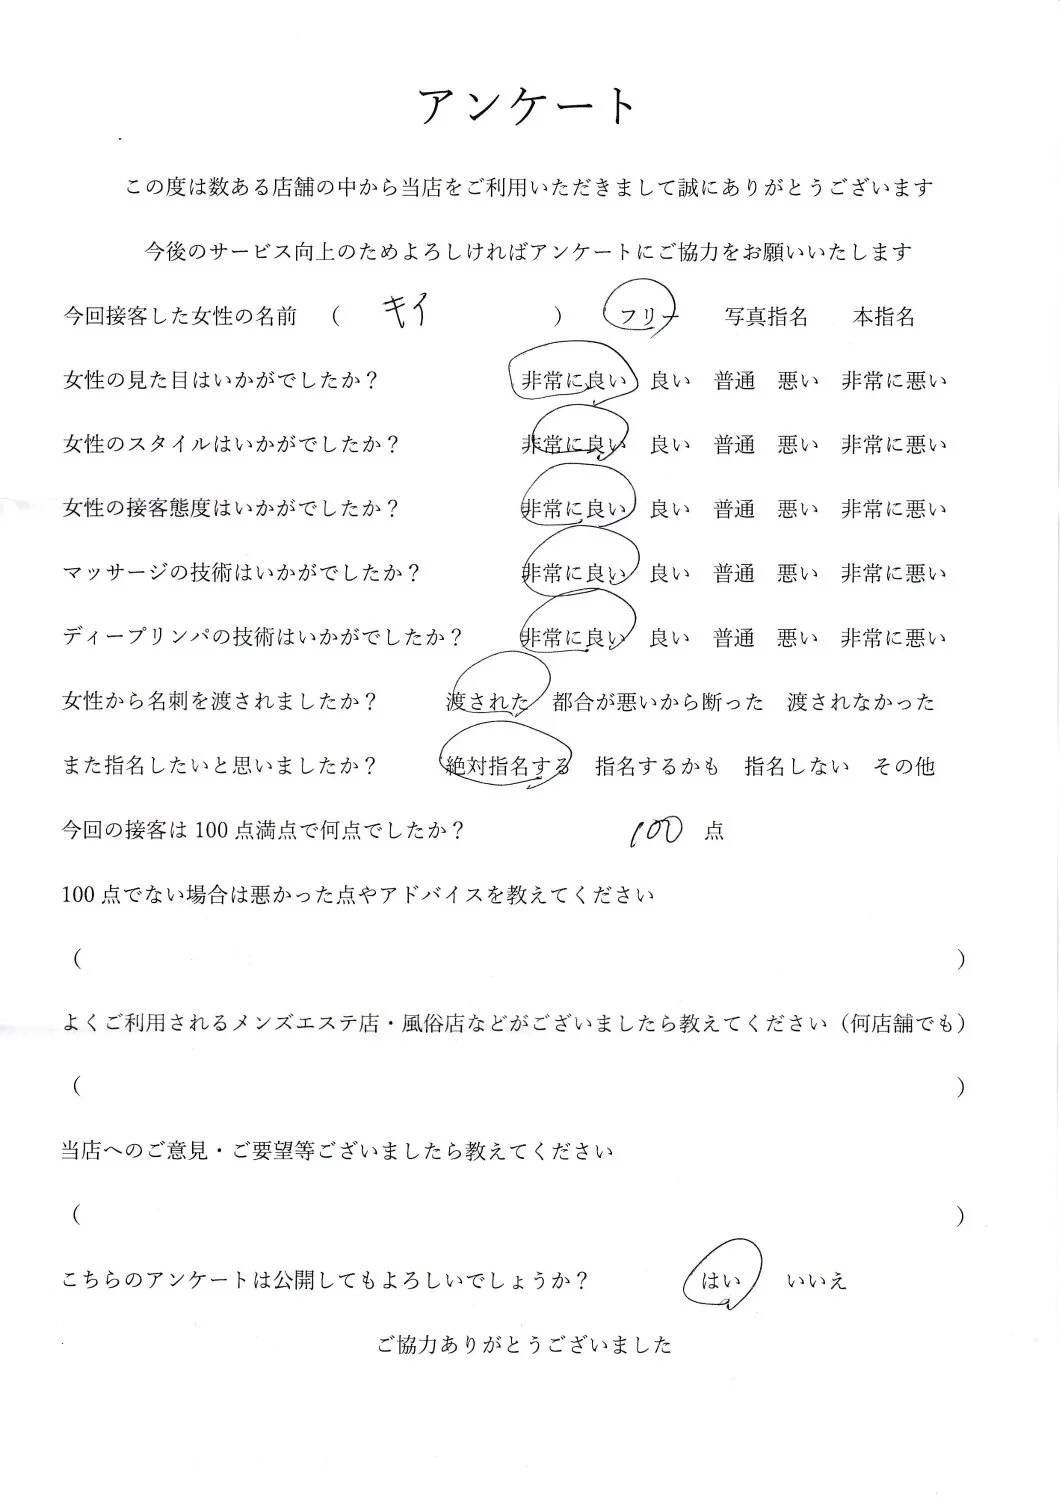 アンケート
この度は数ある店舗の中から当店をご利用いただきまして誠にありがとうございます
今後のサービス向上のためよろしければアンケートにご協力をお願いいたします
今回接客した女性の名前 ( キイ ) フリー 写真指名 本指名
女性の見た目はいかがでしたか? 非常に良い 良い 普通 悪い 非常に悪い
女性のスタイルはいかがでしたか? 非常に良い 良い 普通 悪い 非常に悪い
女性の接客態度はいかがでしたか? 非常に良い 良い 普通 悪い 非常に悪い
マッサージの技術はいかがでしたか? 非常に良い 良い 普通 悪い 非常に悪い
ディープリンパの技術はいかがでしたか? 非常に良い 良い 普通 悪い 非常に悪い
女性から名刺を渡されましたか? 渡された 都合が悪いから断った 渡されなかった
また指名したいと思いましたか? 絶対指名する 指名するかも 指名しない その他
今回の接客は 100 点満点で何点でしたか? 100 点
100 点でない場合は悪かった点やアドバイスを教えてください
( )
よくご利用されるメンズエステ店・風俗店などがございましたら教えてください(何店舗でも)
( )
当店へのご意見・ご要望等ございましたら教えてください
( )
こちらのアンケートは公開してもよろしいでしょうか? はい いいえ
ご協力ありがとうございました